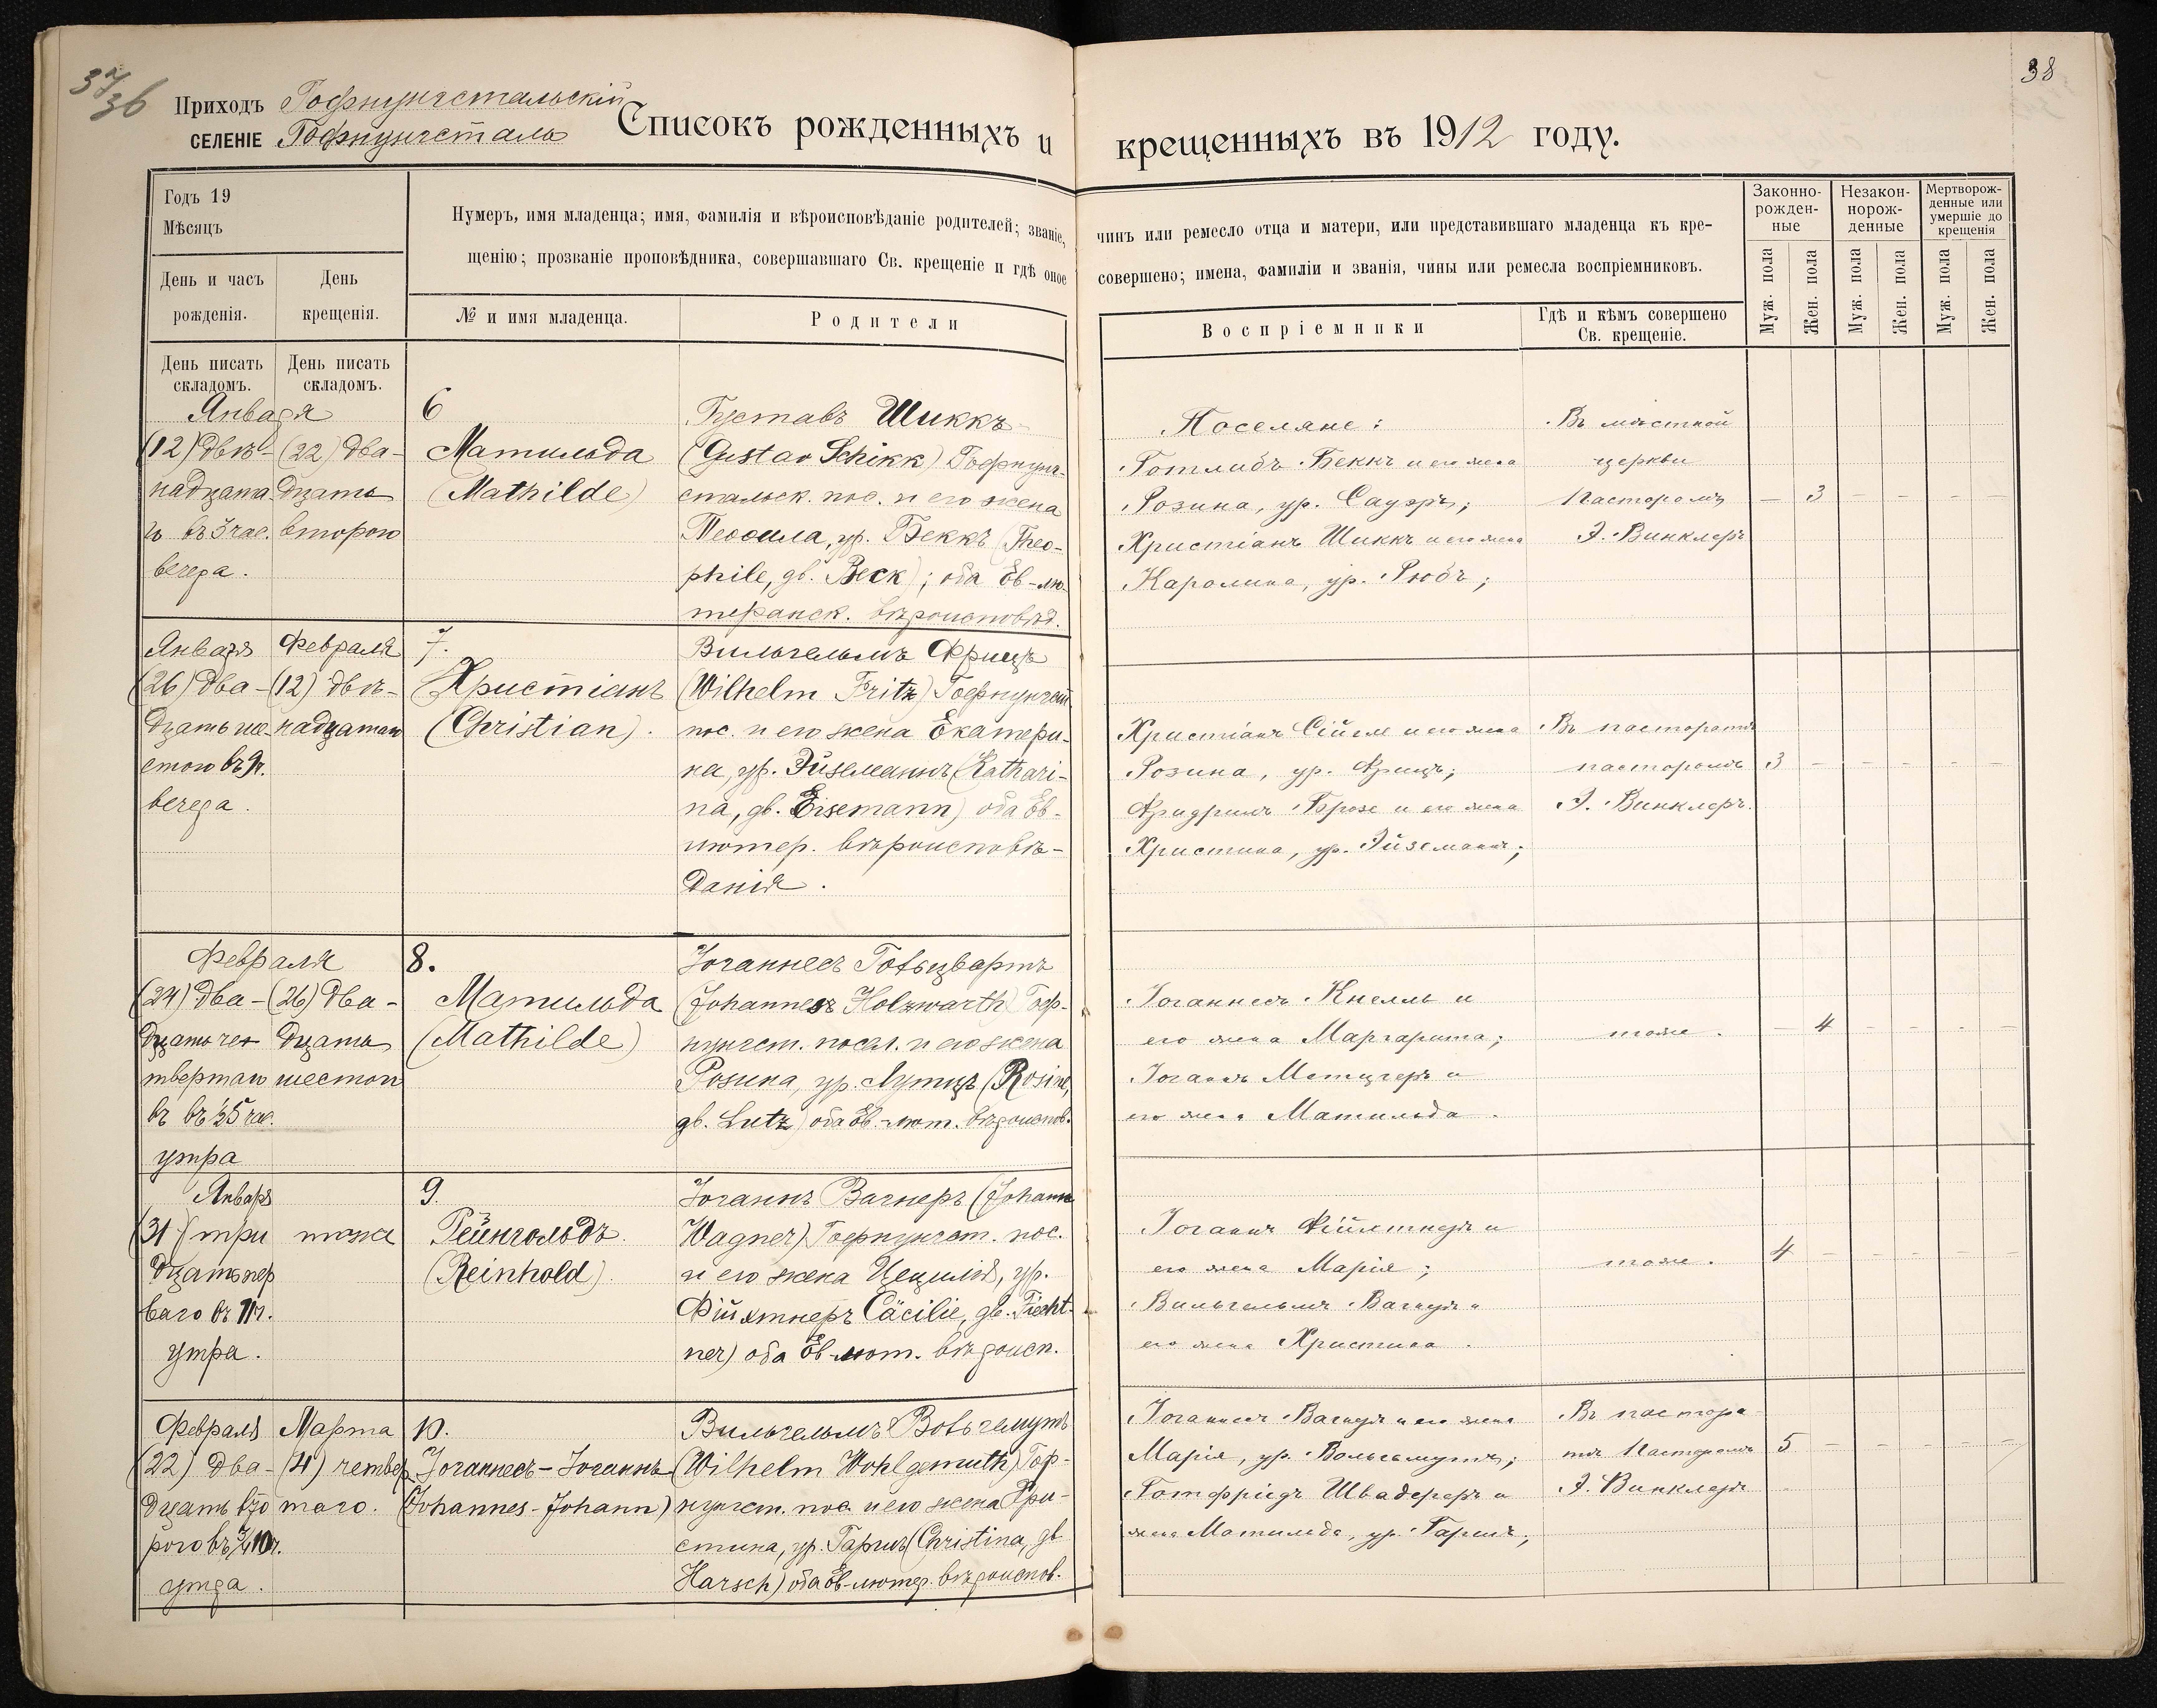 38
36
Приходъ Гофнунгстальскій
СЕЛЕНІЕ Гофнунгсталь
Списокъ рожденныхъ и крещенныхъ въ 1912 году.
Годъ 19
Мѣсяцъ
День и часъ рожденія.
День крещенія.
Нумеръ, имя младенца; имя, фамилія и вѣроисповѣданіе родителей; званіе, чинъ или ремесло отца и матери, или представившаго младенца къ кре-
щенію; прозваніе проповѣдника, совершавшаго Св. крещеніе и гдѣ оное совершено; имена, фамиліи и званія, чины или ремесла воспріемниковъ.
№ и имя младенца.
Родители
Воспріемники
Гдѣ и кѣмъ совершено
Св. крещеніе.
Законно-
рожден-
ные
Незакон-
норож-
денные
Мертворож-
денные или
умершіе до
крещенія
Муж. пола
Жен. пола
Муж. пола
Жен. пола
Муж. пола
Жен. пола
День писать
складомъ.
День писать
складомъ.
Января
(12) двѣ-
надцата-
го въ 3 час.
вечера.
(22) два-
дцать
второго
6
Матильда
(Mathilde)
Густавъ Шиккъ
(Gustav Schikk) Гофнунг-
стальск. пос. и его жена
Теофила, ур. Беккъ (Theo-
phile, gb. Beck); оба Ев-лю-
теранск. вѣроисповѣд.
Поселяне:
Готлибъ Беккъ и его жена
Розина, ур. Сауэръ;
Христіанъ Шиккъ и его жена
Каролина, ур. Рюбъ;
Въ мѣстной
церкви
Пасторомъ
Э. Винклеръ
— 3 — — — —
Январь
(26) два-
дцать ше-
стого въ 9ч.
вечера.
Февраля
(12) двѣ-
надцатаго
7.
Христіанъ
(Christian).
Вильгельмъ Фрицъ
(Wilhelm Fritz) Гофнунгст.
пос. и его жена Екатери-
на, ур. Эйземаннъ (Kathari-
na, gb. Eisemann) оба Ев-
лютер. вѣроисповѣ-
данія.
Розина, ур. Фрицъ;
Фридрихъ Брозе и его жена
Христина, ур. Эйземаннъ;
Въ пасторатѣ
пасторомъ
Э. Винклеръ.
3 — — — — —
Февраля
(24) два-
дцать чет
твертаго
въ 5 час.
утра
(26) два-
дцать
шестого
8.
Матильда
(Mathilde)
Іоганнесъ Гольцвартъ
(Johannes Holzwarth) Гоф-
нунгст. посел. и его жена
Розина, ур. Лутцъ (Rosine,
gb. Lutz) оба Ев.-лют. вѣроиспов.
Іоганнесъ Кнелль и
его жена Маргарита;
Іоганнъ Метцгеръ и
его жена Матильда.
тоже.
4 — — — —
Январь
(31) три
дцать пер
ваго въ 11ч.
утра.
тоже
9.
Рейнгольдъ.
(Reinhold).
Іоганнъ Вагнеръ (Johann
Wagner) Гофнунгст. пос.
и его жена Цецилія, ур.
Фійхтнеръ Cäcilie, gb. Fiecht-
ner) оба Ев-лют. вѣроисп.
Іоганнъ Фійхтнеръ и
его жена Марія;
Вильгельмъ Вагнеръ и
его жена Христина.
тоже.
4 — — — — —
Февраля
(22) два-
дцать вто
рого въ 3/4 10ч.
утра.
Марта
(4) четвер
таго.
10.
Іоганнесъ-Іоганнъ
(Johannes-Johann)
Вильгельмъ Вольгемутъ
(Wilhelm Wohlgemuth) Гоф-
нунгст. пос. и его жена Хри-
стина, ур. Гаршъ (Christina, gb
Harsch) оба Ев-лютер. вѣроиспов.
Іоганнесъ Вагнеръ и его жена
Марія, ур. Вольгемутъ;
Готфридъ Швадереръ и
жена Матильда, ур. Гаршъ;
Въ пастора-
тѣ Пасторомъ
Э. Винклеръ
5 — — — — —